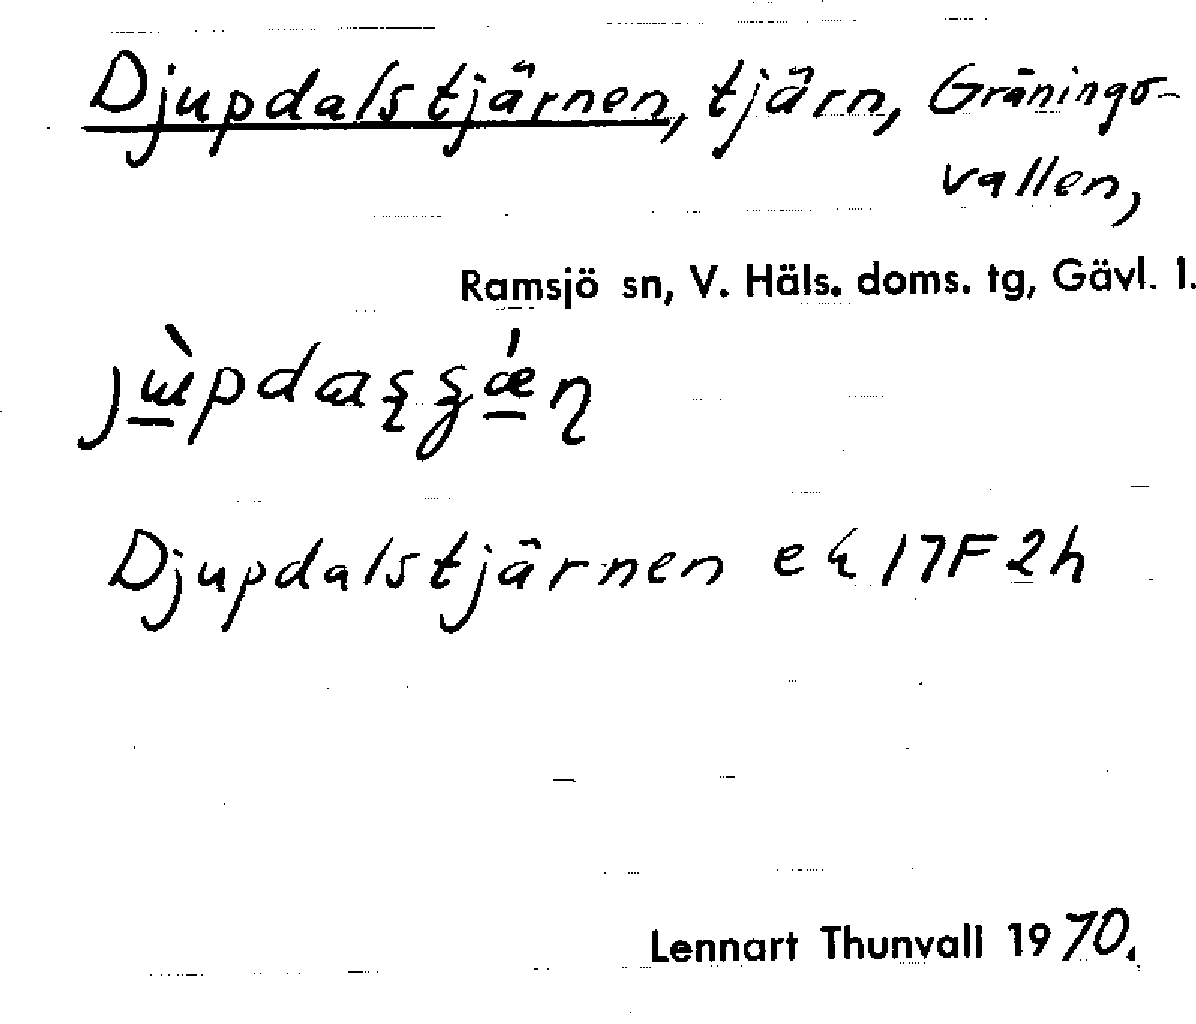 Djupdalstjärnen, tjärn, Gränings-
vallen,
Ramsjö sn, V. Häls. doms. tg, Gävl. l.
Djupdalstjärnen ek 17F2h
Lennart Thunvall 1970.